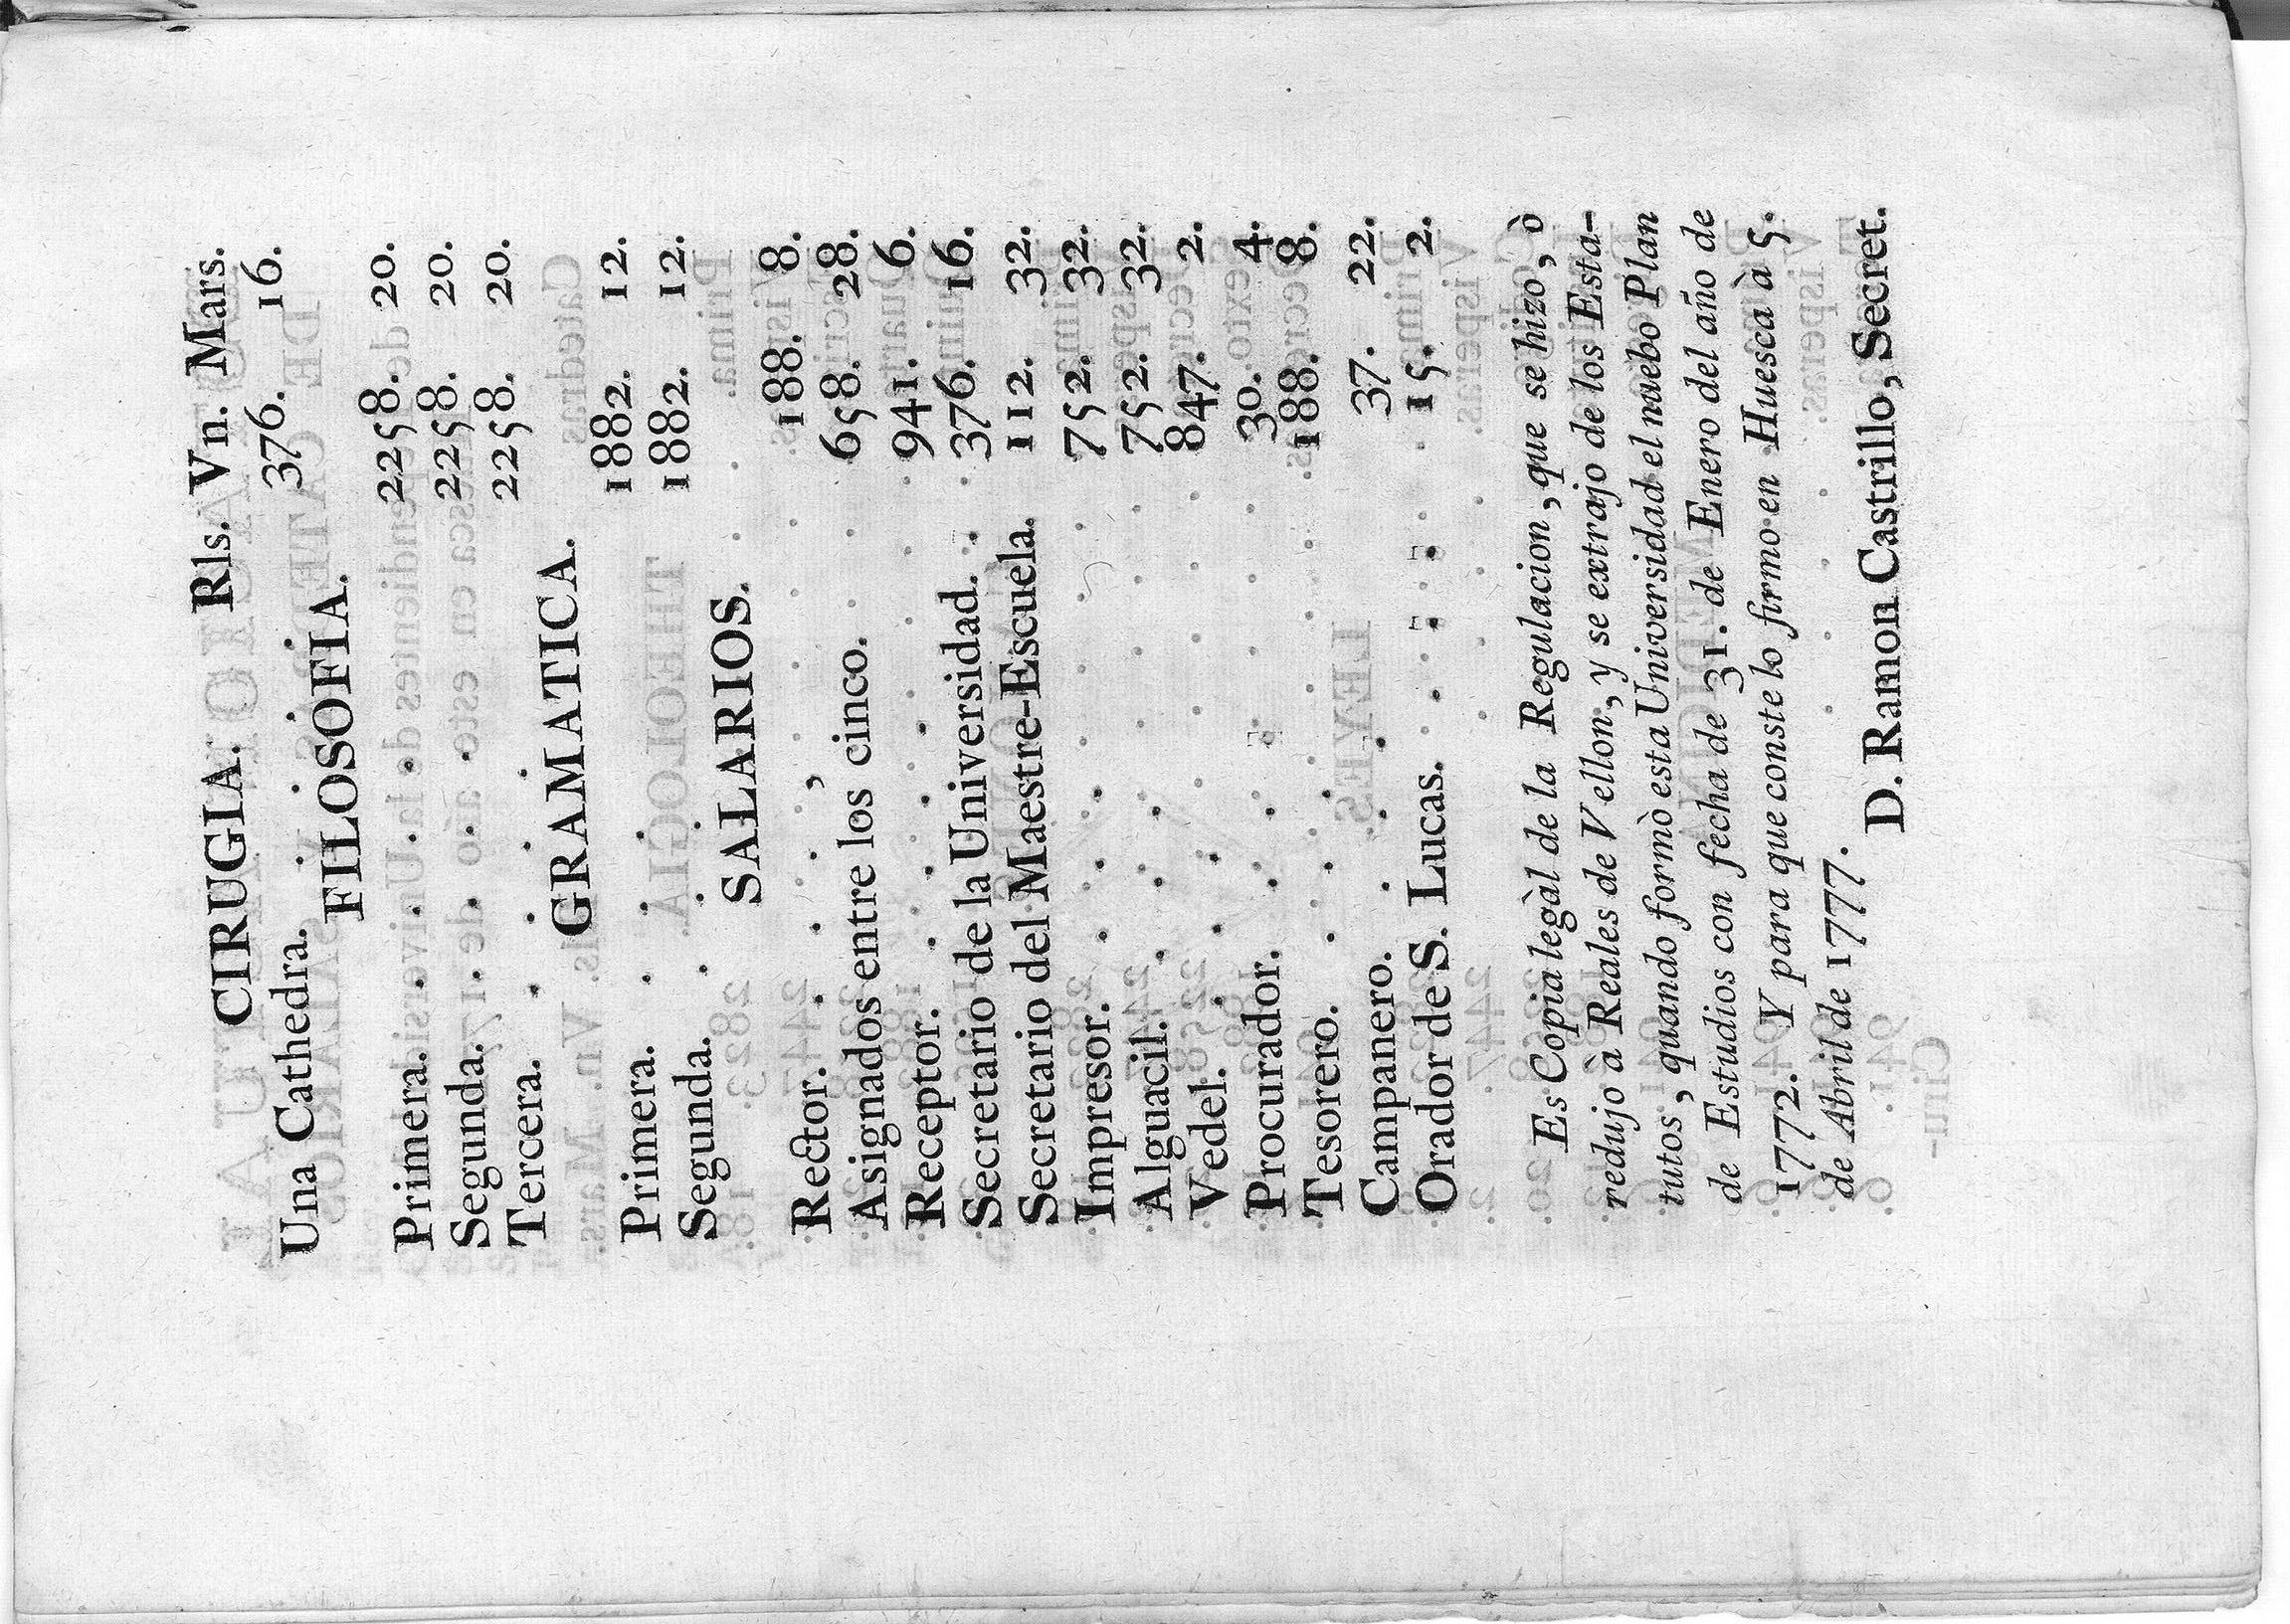 CIRUGIA. Rls. Vn. Mars.
Una Cathedra. . . . . 376. 16.
FILOSOFIA.
Primera. . . . . 2258. 20.
Segunda. . . . . 2258. 20.
Tercera. . . . . 2258. 20.
GRAMATICA.
Primera. . . . 1882. 12.
Segunda. . . . 1882. 12.
SALARIOS.
Rector. . . . . 188. 8.
Asignados entre los cinco. . . 658. 28.
Receptor. . . . . . 941. 6.
Secretario de la Universidad. . . 376. 16.
Secretario del Maestre-Escuela. 112. 32.
Impresor. . . . . . 752. 32.
Alguacil. . . . . . 752. 32.
Vedel. . . . . . 847. 2.
Procurador. . . . . . 30. 4.
Tesorero. . . . . . 188. 8.
Campanero. . . . . 37. 22.
Orador de S. Lucas. . . . 15. 2.
Es Copia legàl de la Regulacion, que se hizo, ò
redujo à Reales de Vellon, y se extrajo de los Esta-
tutos, quando formò esta Universidad el nuebo Plan
de Estudios con fecha de 31. de Enero del año de
1772. Y para que conste lo firmo en Huesca à 5.
de Abril de 1777.
D. Ramon Castrillo, Secret.